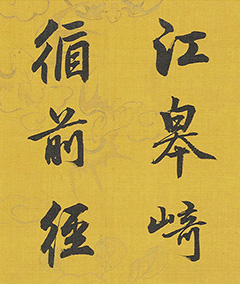 江皋崎
循前徑